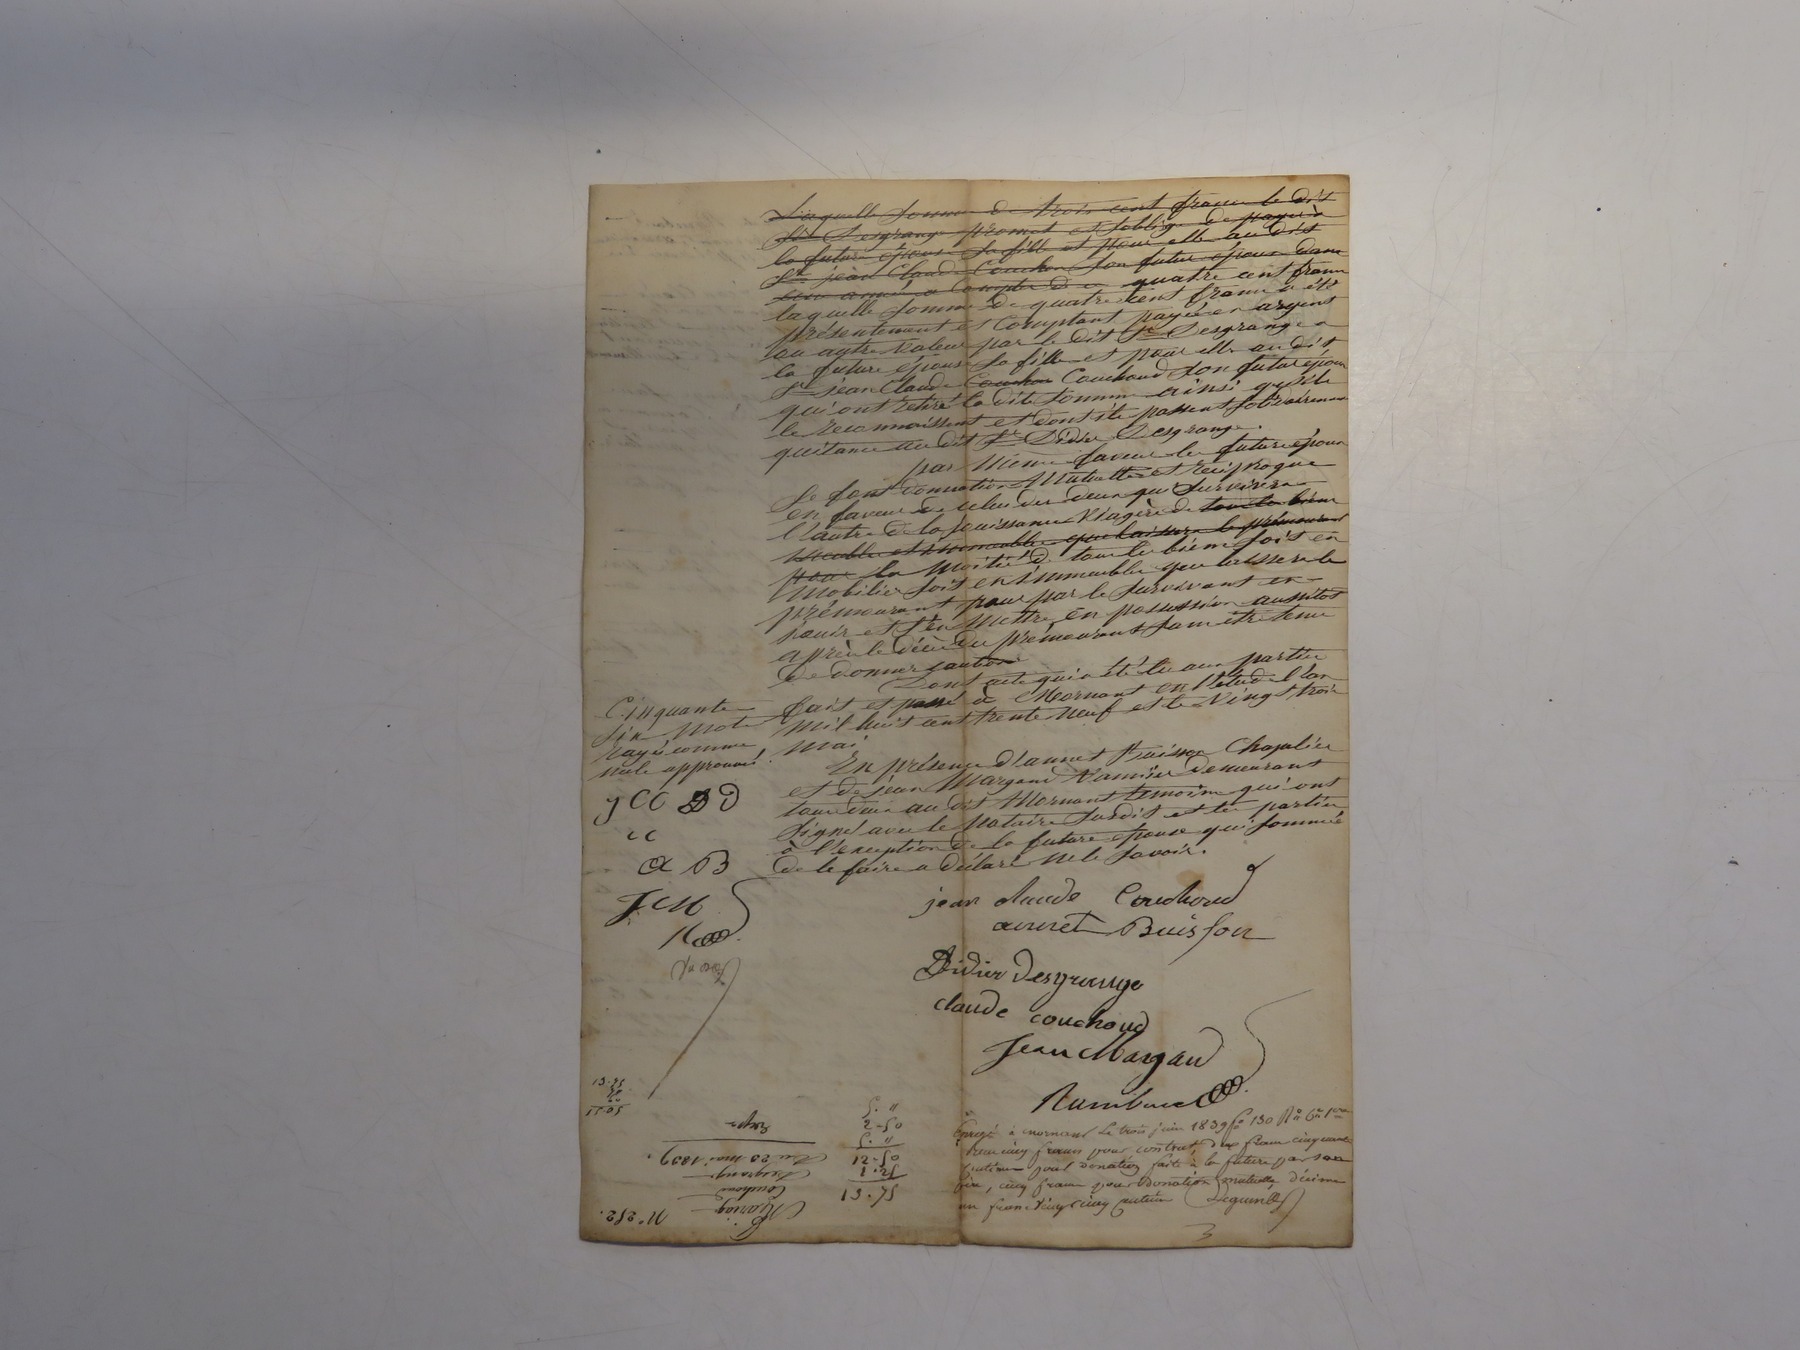 Laquelle somme de trois cent francs le dit
Sr Desgrange promet et s'oblige de payer à
la future épouse sa fille et pour elle au dit
Sr jean Claude Couchou son futur époux dans
quatre cent francs
laquelle somme de quatre cent francs a été
présentement et comptant payée en argent
ou autre valeur par le dit Sr Desgrange a
la future épouse sa fille et pour elle au dit
Sr jean Claude Couchou Couchoud son futur époux
qui ont retiré la dite somme ainsi qu'ils
le reconnoissent et dont ils passent solidairement
quitance au dit Sr Didier Desgrange.
par même faveur les futurs époux
se font donnation Mutuelle et réciproque
en faveur de celui des deux qui survivra
l'autre de la jouissance Viagère de tous les biens
meubles et immeubles que laissera le prémourant
pour la moitié de tous les biens soit en
Mobilier soit en immeubles que laissera le
prémourant pour par le survivant en
jouir et s'en mettre en possession aussitot
après le décès du prémourant sans être tenu
de donner caution
Dont acte qui a été lu aux parties
fait et passé à Mornant en l'étude l'an
mil huit cent trente neuf et le Vingt trois
mai
En présence d'annet Buisson Chapelier
et de jean Margand Vannier demeurant
tous deux au dit Mornant témoins qui ont
signé avec le notaire susdit et les parties
à l'exception de la future épouse qui sommée
de le faire a déclaré ne le savoir.
Cinquante
six mots
rayés comme
nuls approuvés
J CC D D
CC
a B
J M
R
jean claude Couchoud
annet Buisson
Didier Desgrange
claude couchoud
Jean Margand
Enregé à mornant Le trois juin 1839 fo 130 Ro Ces 1er
Reçu cinq francs pour contrat, deux francs cinquante
centimes pour donation faite à la future par son
père, cinq francs pour donation mutuelle, décime
un franc Vingt cinq centimes
3
N° 252.
Mariage
Couchoud
Desgrange
Du 23 mai 1839.
Exp
13.75
1.25
12-50
5."
2-50
5."
13.75